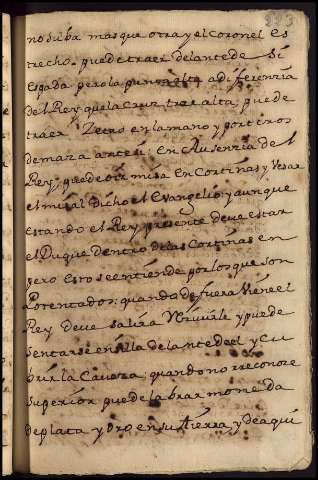 223
no suba mas que otra y el coronel es
trecho. puede traer delante de Si
espada pero la punta alta a diferenzia
del Rey que la Cruz trae alta; puede
traer Zetro en la mano y porteros
de maza ante si En Ausenzia del
Rey, puede oir misa En Cortinas y Vesar
el misal Dicho el Evangelio; y aunque
estando el Rey presente deve estar
el Duque dentro de las Cortinas en
pero esto se entiende por los que son
Potentados; quando de fuera Viene el
Rey deve salir a Rezivirle y puede
Sentarse en silla delante del y Cu
brir la Caveza; quando no rreconoze
Superior puede labrar moneda
de plata y Oro en su tierra y de aqui